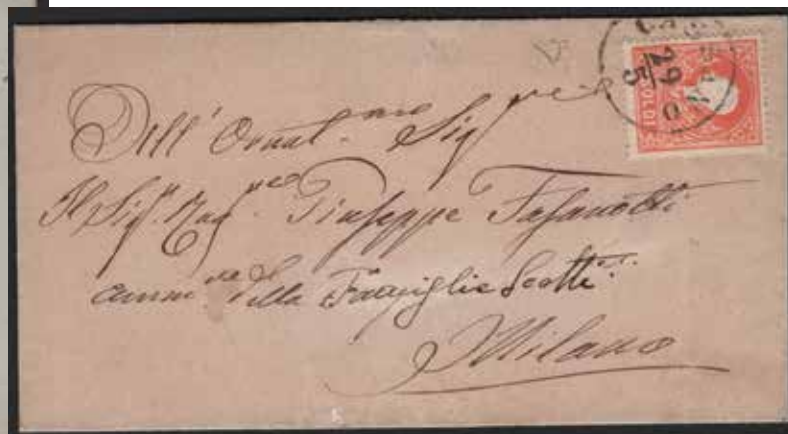 29
5
SOLDI
Dell' Ornat.mo Sig.re
Il Sig.r Rag.re Giuseppe Fasanotti
amm.re della Famiglia Scotti
Milano